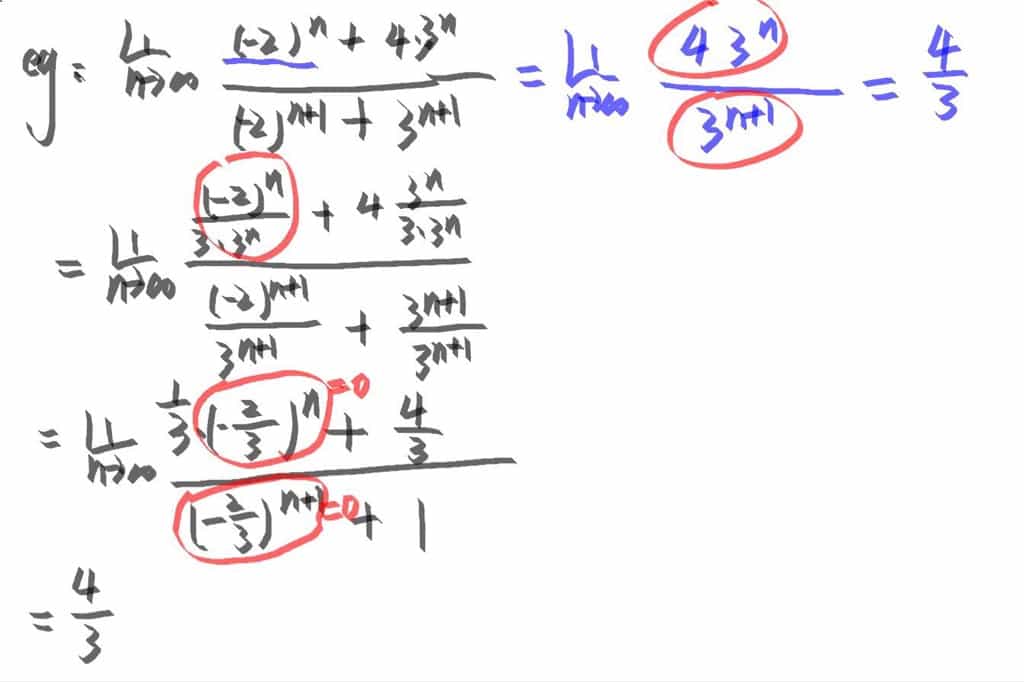 eg: lim n→∞ ((-2)^n + 4·3^n) / ((-2)^(n+1) + 3^(n+1)) = lim n→∞ (4 3^n) / (3^(n+1)) = 4/3
= lim n→∞ ((-2)^n/(3·3^n) + 4 3^n/(3·3^n)) / ((-2)^(n+1)/3^(n+1) + 3^(n+1)/3^(n+1))
= lim n→∞ (1/3·(-2/3)^n =0 + 4/3) / ((-2/3)^(n+1) =0 + 1)
= 4/3